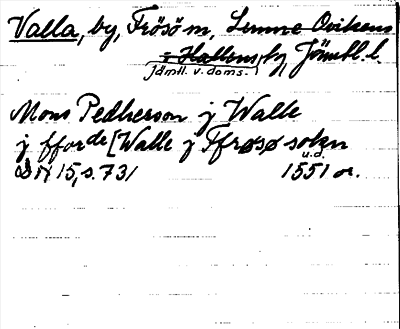 Valla, by, Frösö sn, Sunne Ovikens
o Hallens tg Jämtl. l.
jämtl. v. doms.
Mons Pedherson j Walle
j fforde [Walle j Ffrøsø sokn
u.d.
DN 15, s. 731 1551 or.